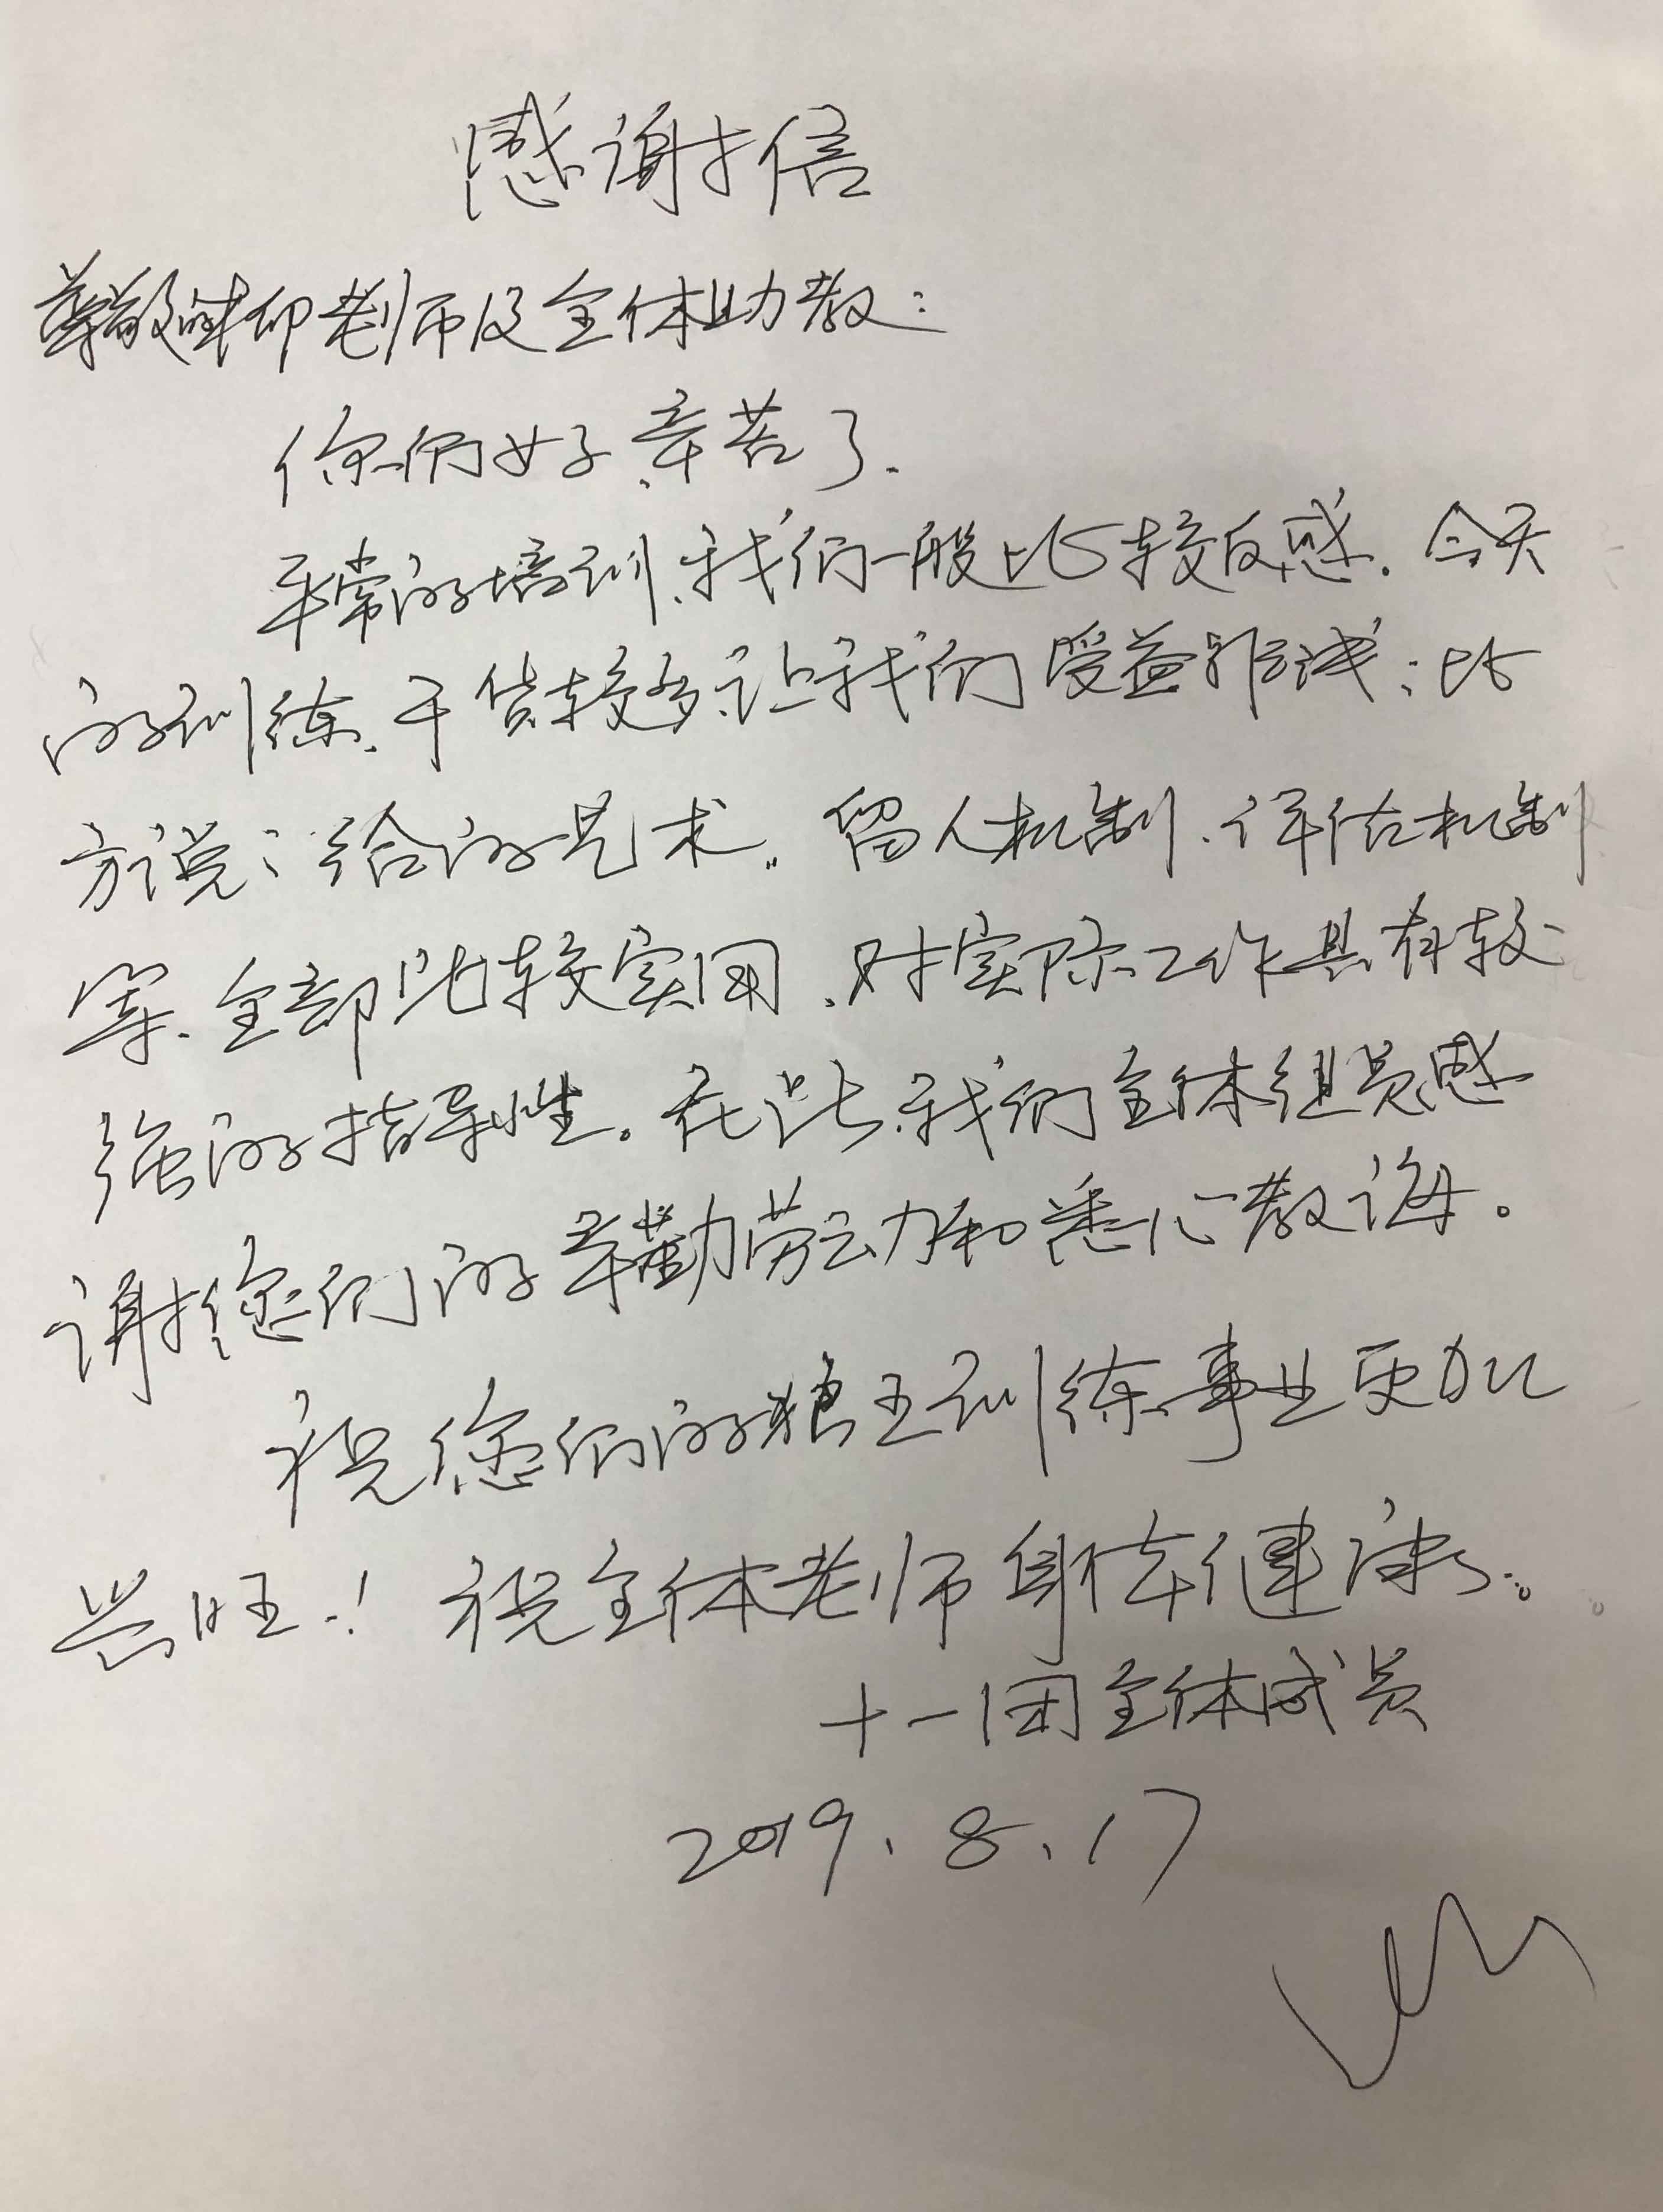 感谢信
尊敬的老师及全体助教：
你们好、辛苦了.
平常的培训、我们一般比较反感. 今天
的训练、干货较多、让我们受益非浅；比
方说：给的是术。留人机制、评估机制
等、全部比较实用、对实际工作具有较
强的指导性。在此、我们全体组员感
谢您们的辛勤劳动和悉心教诲。
祝您们的狼王训练事业更加
兴旺！祝全体老师身体健康。
十一团全体成员
2019、8、17